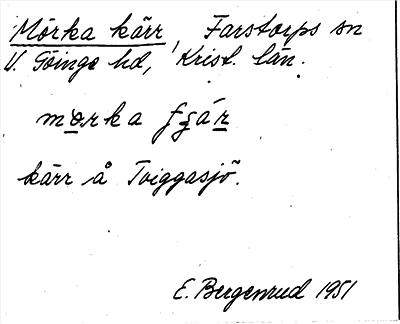 Mörka kärr, Farstorps sn
V. Göinge hd, Krist. län.
mørka ʃʒár
kärr å Tviggasjö.
E. Bergenrud 1951